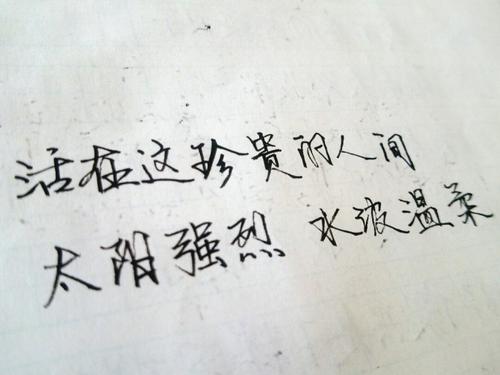 活在这珍贵的人间
太阳强烈 水波温柔